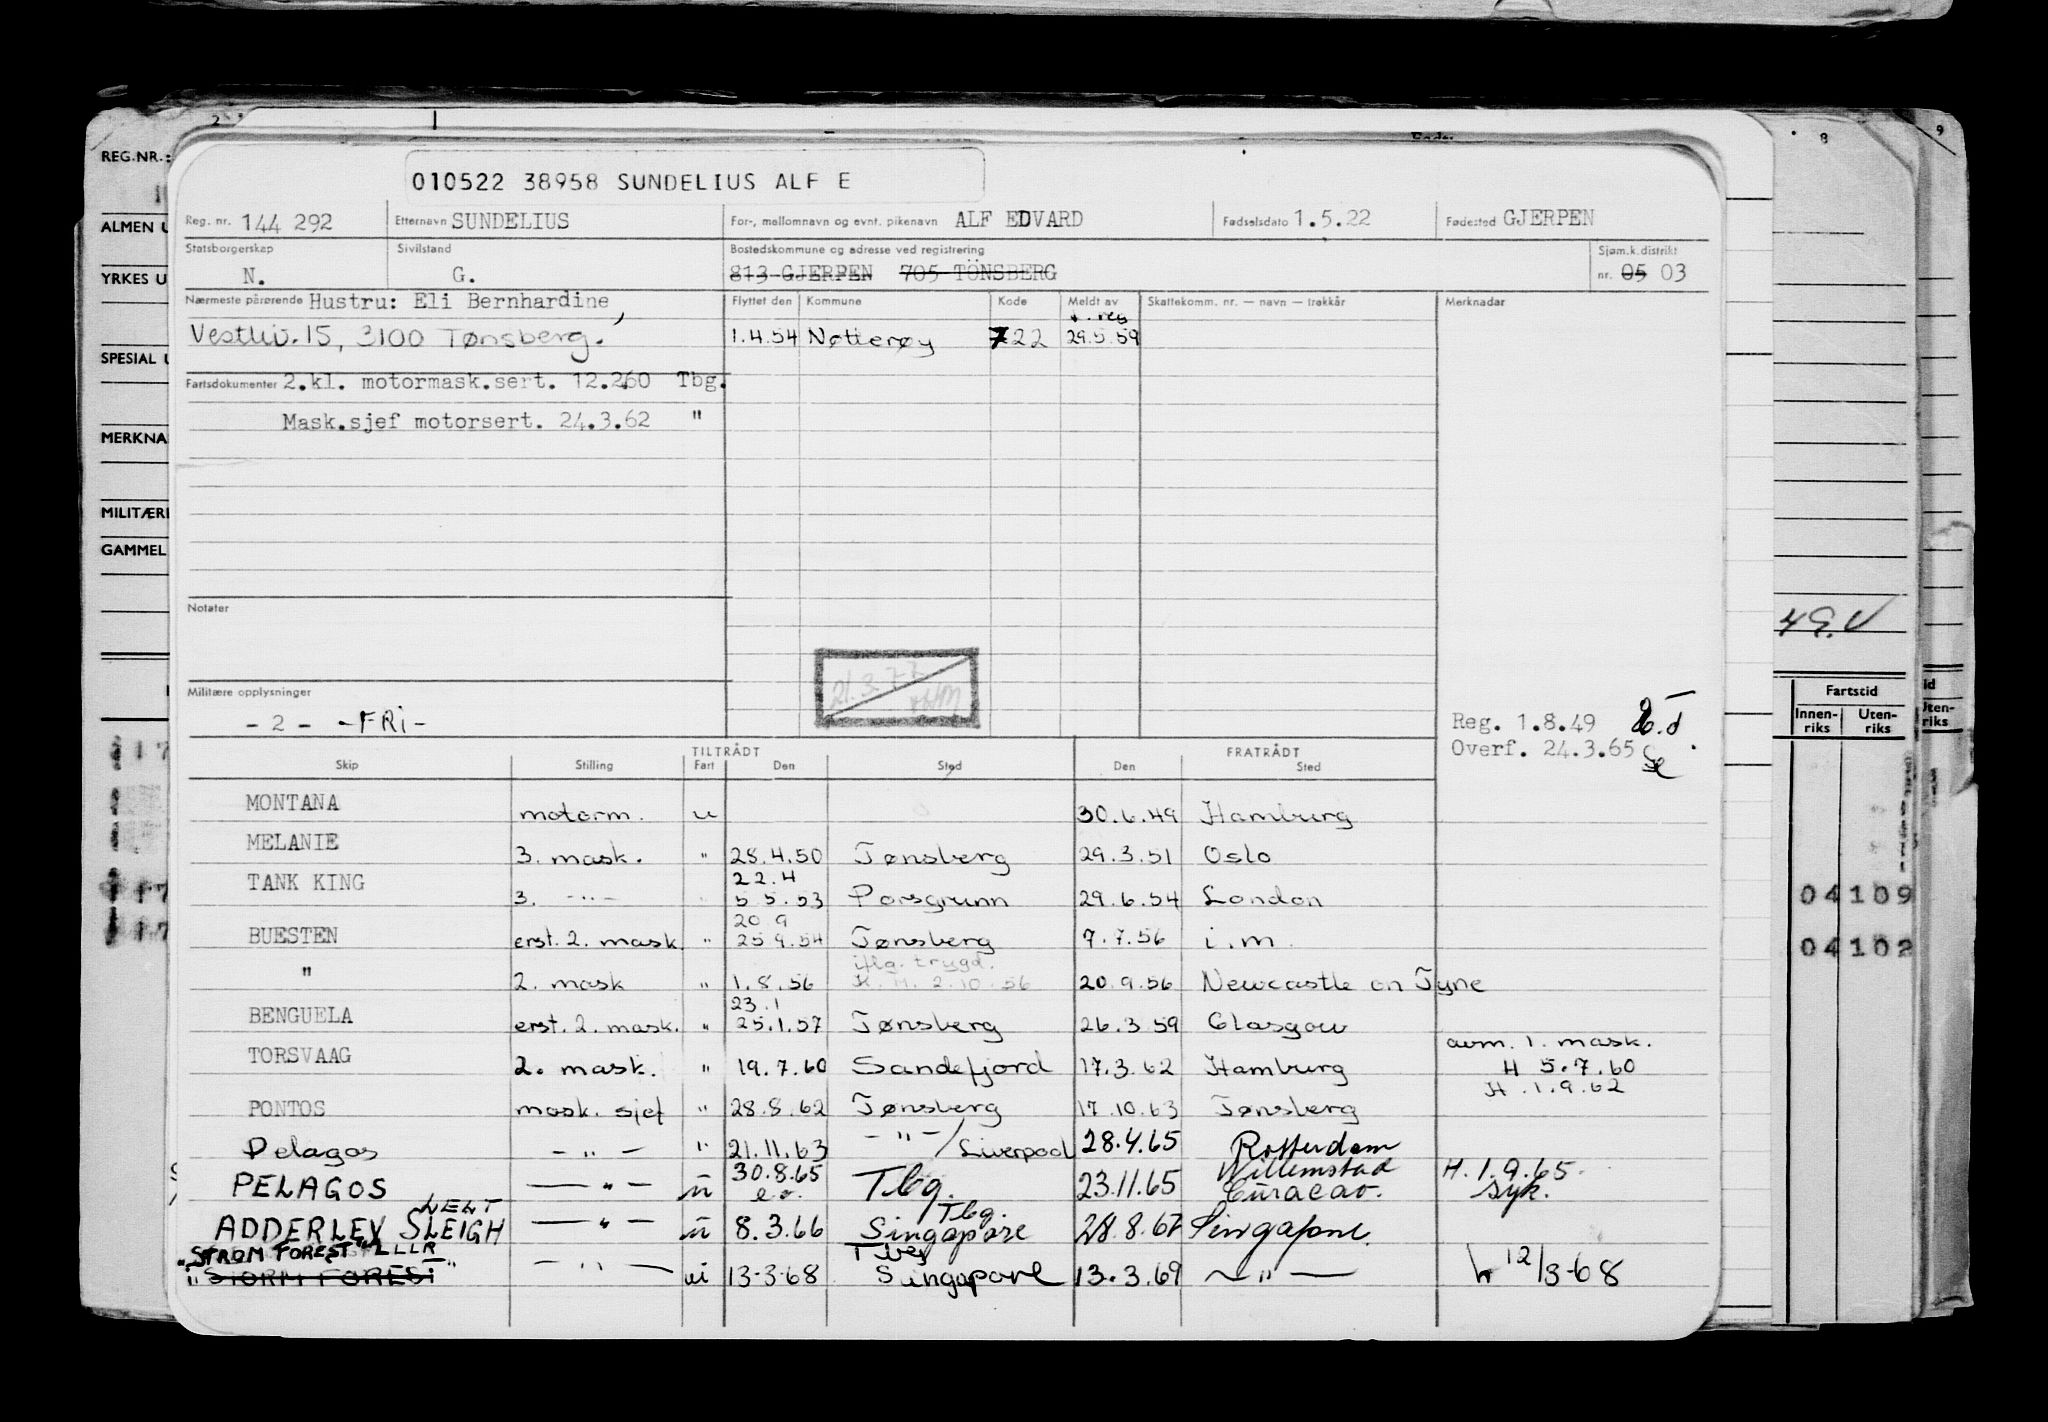 010522 38958 SUNDELIUS ALF E
Reg. nr. 144 292 Etternavn SUNDELIUS For-, mellomnavn og evnt. pikenavn ALF EDVARD Fødselsdato 1.5.22 Fødested GJERPEN
Statsborgerskap Sivilstand Bostedskommune og adresse ved registrering Sjøm.k.distrikt
N. G. 813 GJERPEN 705 TÖNSBERG nr. 05 03
Nærmeste pårørende Hustru: Eli Bernhardine, Flyttet den Kommune Kode Meldt av Skattekomm. nr. — navn — trekkår Merknader
Vestliv. 15, 3100 Tønsberg. 1.4.54 Nøtterøy 722 29.5.59
Fartsdokumenter 2.kl. motormask.sert. 12.2.60 Tbg.
Mask.sjef motorsert. 24.3.62 "
Notater
21.3.77
Militære opplysninger
- 2 - -FRi-
Reg. 1.8.49
Overf. 24.3.65
TILTRÅDT FRATRÅDT
Skip Stilling Fart Den Sted Den Sted
MONTANA motorm. u 30.6.49 Hamburg
MELANIE 3. mask. " 28.4.50 Tønsberg 29.3.51 Oslo
22.4
TANK KING 3. -"- " 5.5.53 Porsgrunn 29.6.54 London
20 9
BUESTEN erst. 2. mask. " 25 9.54 Tønsberg 7.7.56 i.m.
iflg. trygd.
" 2. mask " 1.8.56 H. M. 2.10.56 20.9.56 Newcastle on Tyne
23.1
BENGUELA erst. 2. mask. " 25.1.57 Tønsberg 26.3 59 Glasgow
avm. 1. mask.
TORSVAAG 2. mask. " 19.7.60 Sandefjord 17.3.62 Hamburg H 5.7.60
H .1.9.62
PONTOS mask. sjef " 28.8.62 Tønsberg 17.10.63 Tønsberg
Pelagos - " - " 21.11.63 - " -/Liverpool 28.4.65 Rotterdam
PELAGOS — " — u 30.8.65 Tbg. 23.11.65 Willemstad Curacao. H. 1.9.65. syk.
ADDERLEY SLEIGH — " — u 8.3.66 Tbg. Singapore 28.8.67 Singapore.
"STROM FOREST" LLLR
"STORM FOREST" — " — ui 13-3-68 Tbg Singapore 13.3.69 — " — h 12/3-68
REG.NR.:
ALMEN U
YRKES U
SPESIAL U
MERKNA
MILITÆRE
GAMMEL
2
8
9
49.V
Fartstid
Innen-riks Uten-riks
04 109
04 102
id
Uten-riks